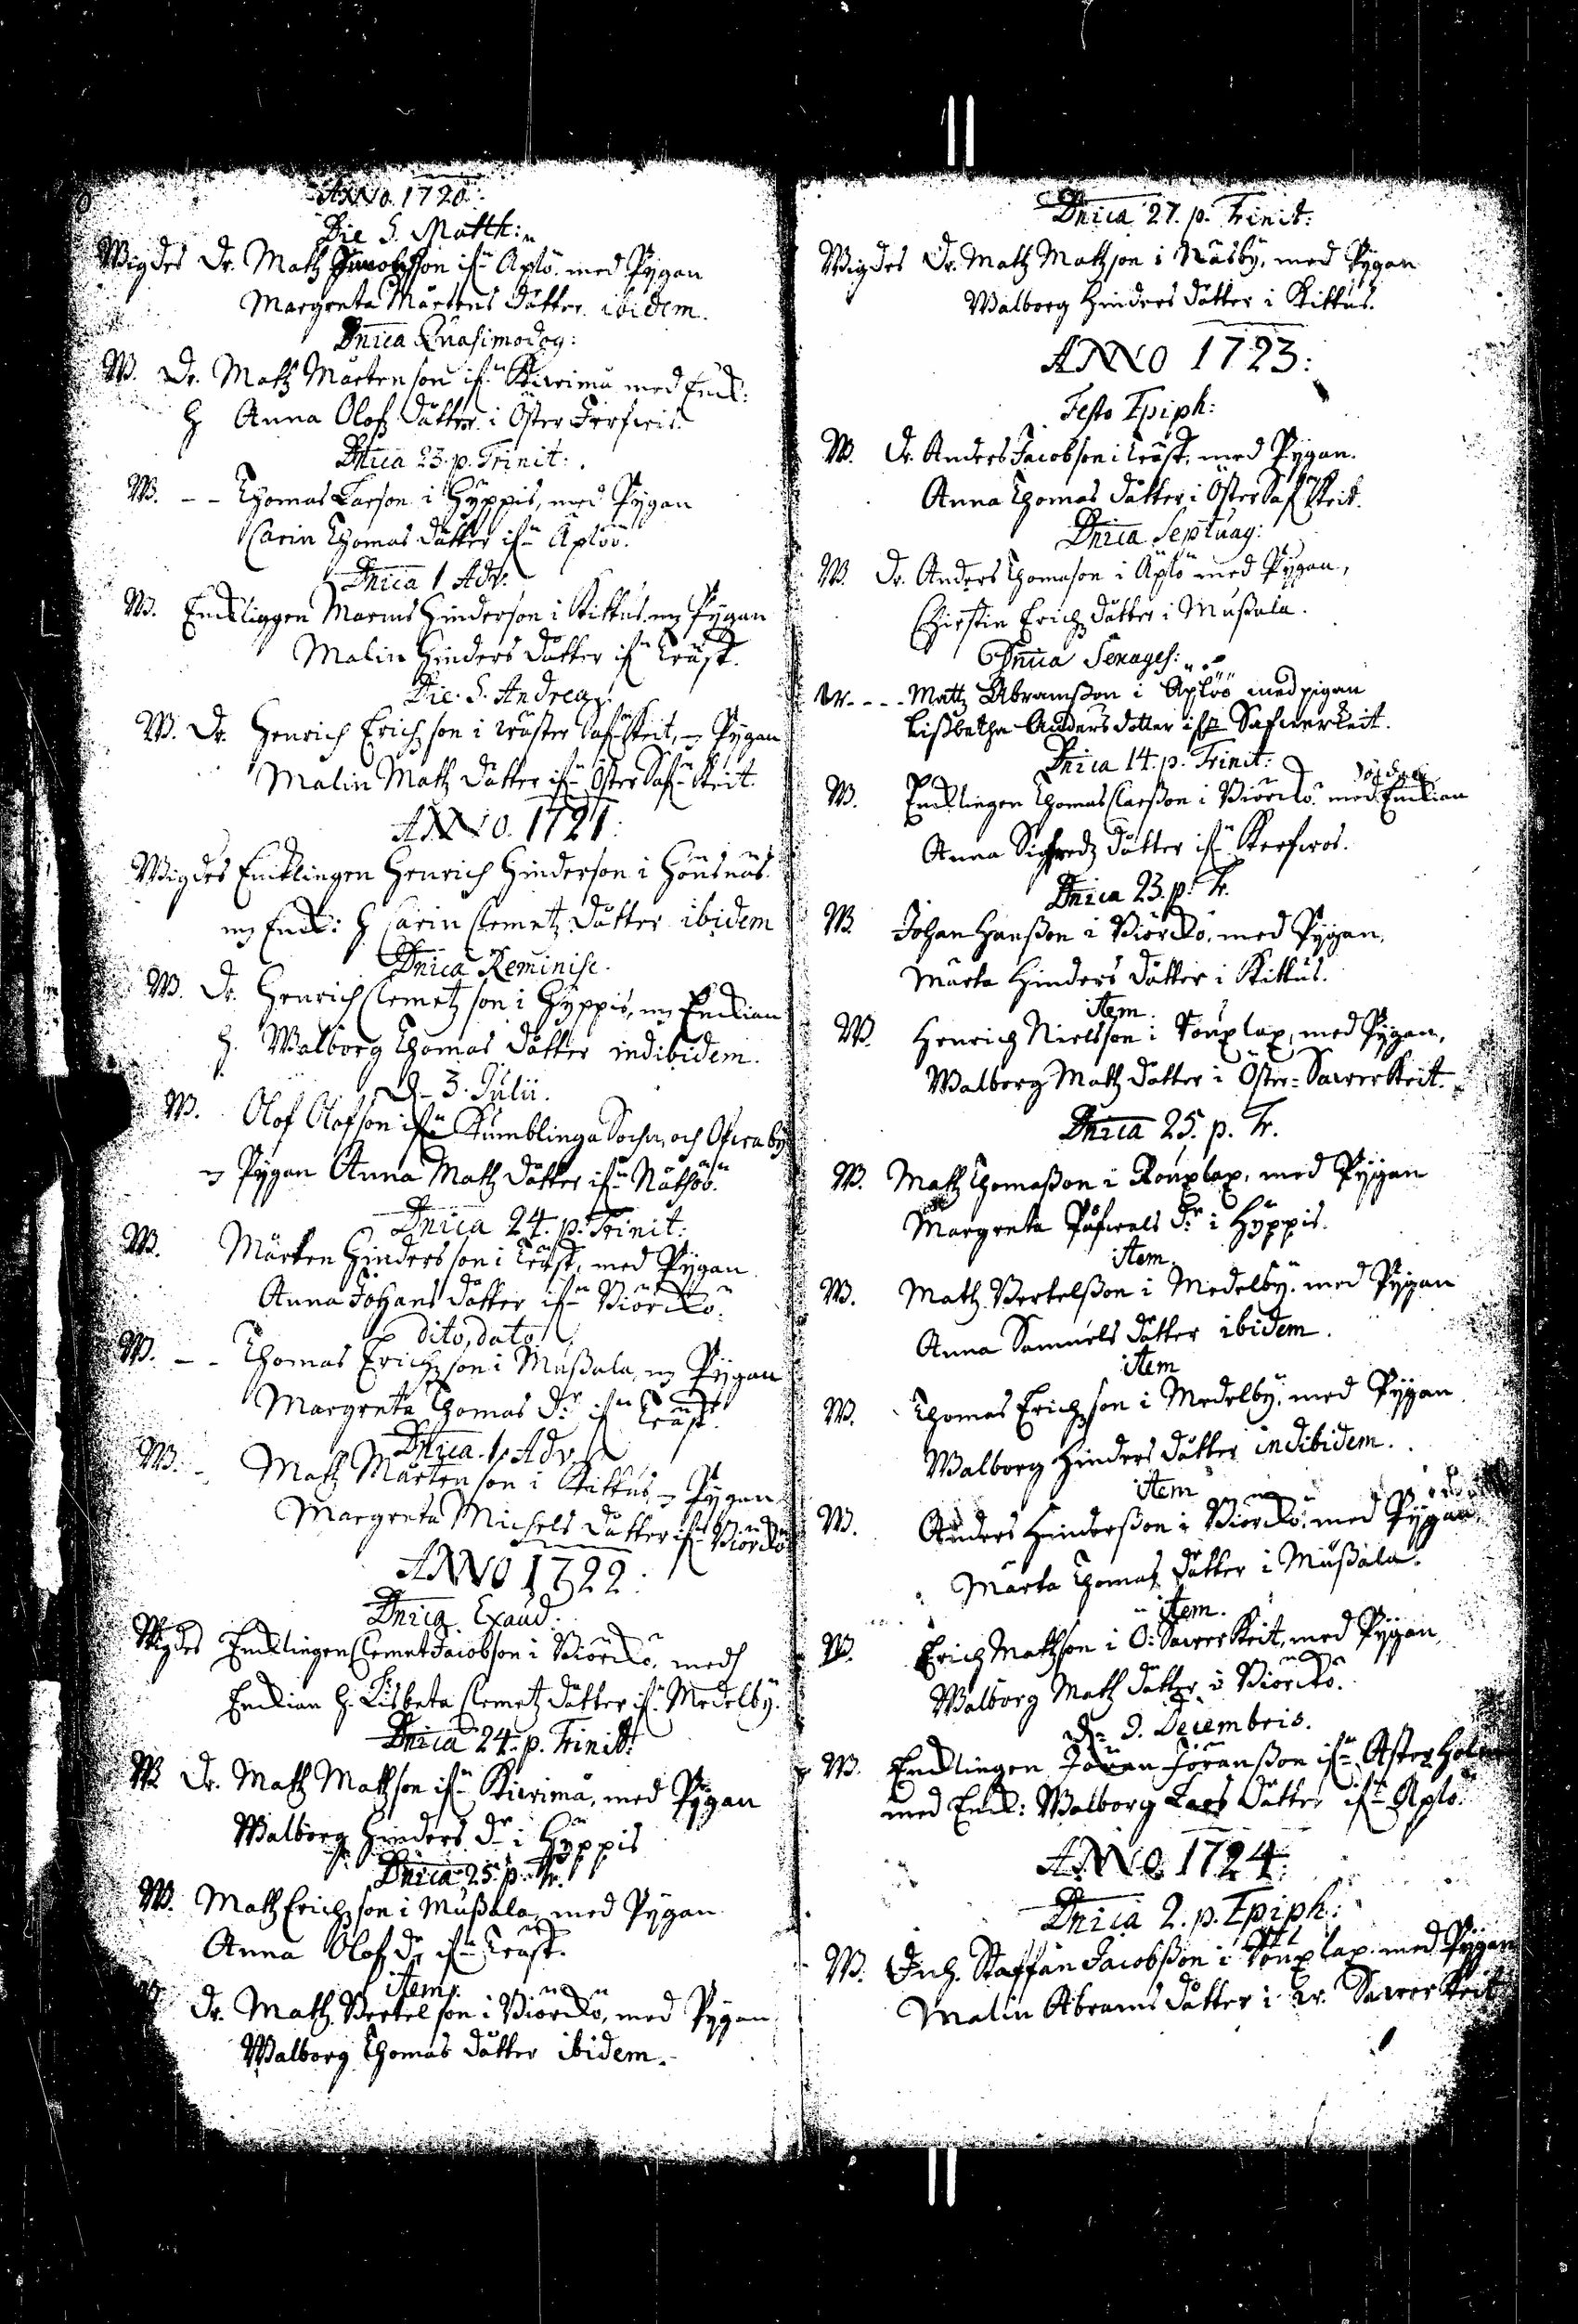 ANNO. 1720:
Die S. Matth:
Wigdes Dr. Matz Jacobsson ifrå Aplö. med Pygan
Margreta Mårtens dåtter ibidem.
Dnica Quasimodog:
W. Dr. Matz Mårtenson ifrå Kiwimå med Enck:
H Anna Olofz dåtter i Öster
Dnica 23. p. Trinit:
W. - - Thomas Larson i Hyppis, med Pygan
Carin Thomas dåtter ifrå Äplöö.
Dnica 1 Adv:
W. Encklingen Marcus Hinderson i Kittus, m Pygan
Malin Hinders dåtter ifrå Träsk.
Die. S. Andreæ:
W. Dr. Henrich Erichson i wäster Safwerkeit, m Pygan
Malin Matz dåtter ifrå Öster Safwerkeit.
ANNO. 1721:
Wigdes Encklingen Henrich Hinderson i Hönsnäs.
m Enck: H Carin Clemetz dåtter ibidem
Dnica Reminisc.
W. Dr. Henrich Clemetzson i Hyppis, m Enckian
H. Walborg Thomas dåtter indibidem.
D. 3. Julii.
W. Olof Olofson ifrå Kumblinge Sochn, och
m Pygan Anna Matz dåtter ifrå Näthöö.
Dnica 24. p. Trinit:
W. Mårten Hindersson i Träsk, med Pygan
Anna Johans dåtter ifrå Biörckö.
dito, dato
W. - - Thomas Erichson i Mußala, m Pygan
Margreta Thomas dr ifrå Träsk.
Dnica. 1. Adv.
W. - Matz Mårtenson i Kittus, m Pygan
Margreta Michels dåtter ifrå Biörckö
ANNO 1722:
Dnica Exaud:
Wigdes Encklingen Clemet Jacobson i Biörckö, med
Enckian H. Lisbeta Clemetz dåtter ifrå Medelby.
Dnica 24. p. Trinit:
W. Dr. Matz Matzson ifrå Kiwimå, med Pygan
Walborg Hinders dr i Hyppis
Dnica 25. p. Tr.
W. Matz Erichson i Mußala, med Pygan
Anna Olofz dr ifrå Träsk.
item:
Dr. Matz Bertelson i Biörckö, med Pygan
Walborg Thomas dåtter ibidem.
Dnica 27. p. Trinit:
Wigdes Dr. Matz Matzson i Näsby, med Pygan
Walborg Hinders dåtter i Kittus.
ANNO 1723:
Festo Epiph:
W. Dr. Anders Jacobson i Träsk, med Pygan.
Anna Thomas dåtter i Öster Safwerkeit.
Dnica Septuag:
W. Dr. Anders Thomason i Äplö med Pygan,
Chirstin Erichz dåtter i Mußala.
Dnica Sexages:
W. - - - Mattz Abramßon i Äplöö med pigan
Lißbetha Anders dotter ifrå Safwerkeit.
Dnica 14. p. Trinit:
W. Encklingen Thomas Clarßon i Biörckö. med Enckian
Anna Sigfredz dåtter ifrå
Dnica 23. p. Tr.
W. Johan Hanßon i Biörckö, med Pygan,
Märta Hinders dåtter i Kittus.
item.
W. Henrich Nielsson i med Pygan,
Walborg Matz dåtter i Öster-Sawerkeit.
Dnica 25. p. Tr.
W. Matz Thomaßon i med Pygan
Margreta Påfwals dr i Hyppis.
item.
W. Matz Bertelßon i Medelby. med Pygan
Anna Samuels dåtter ibidem.
item
W. Thomas Erichson i Medelby. med Pygan
Walborg Hinders dåtter indibidem.
item
W. Anders Hinderßon i Biörckö. med Pygan,
Märta Thomas dåtter i Mußala.
item.
W. Erich Matzson i Ö: Sawerkeit, med Pygan,
Walborg Matz dåtter i Biörckö.
D. 9. Decembris.
W. Encklingen Jöran Jöranßon ifrå Åster Holm
med Enck: Walborg Lars dåtter ifrå Aplö.
ANNO. 1724:
Dnica 2. p. Epiph:
W. Staffan Jacobßon i med Pygan
Malin Abrams dåtter i W. Sawerkeit